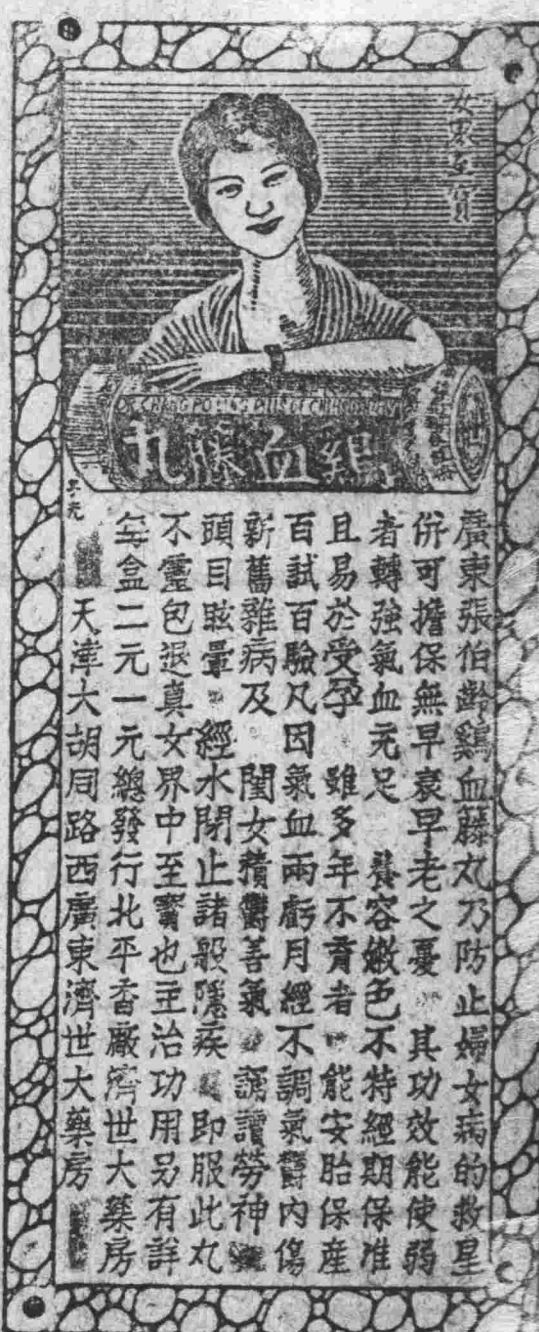 女界至寶
DR CHANG PO LING
雞血藤丸
濟世
廣東張伯齡鷄血藤丸乃防止婦女病的救星
併可擔保無早衰早老之憂 其功效能使弱
者轉強氣血充足 養容嫩色不特經期保准
且易於受孕 雖多年不育者 能安胎保產
百試百驗凡因氣血兩虧月經不調氣鬱內傷
新舊雜病及 閨女積鬱善氣 誦讀勞神
頭目眩暈 經水閉止諸般隱疾 即服此丸
不靈包退真女界中至寶也主治功用另有詳
每盒二元一元總發行北平香廠濟世大藥房
天津大胡同路西廣東濟世大藥房